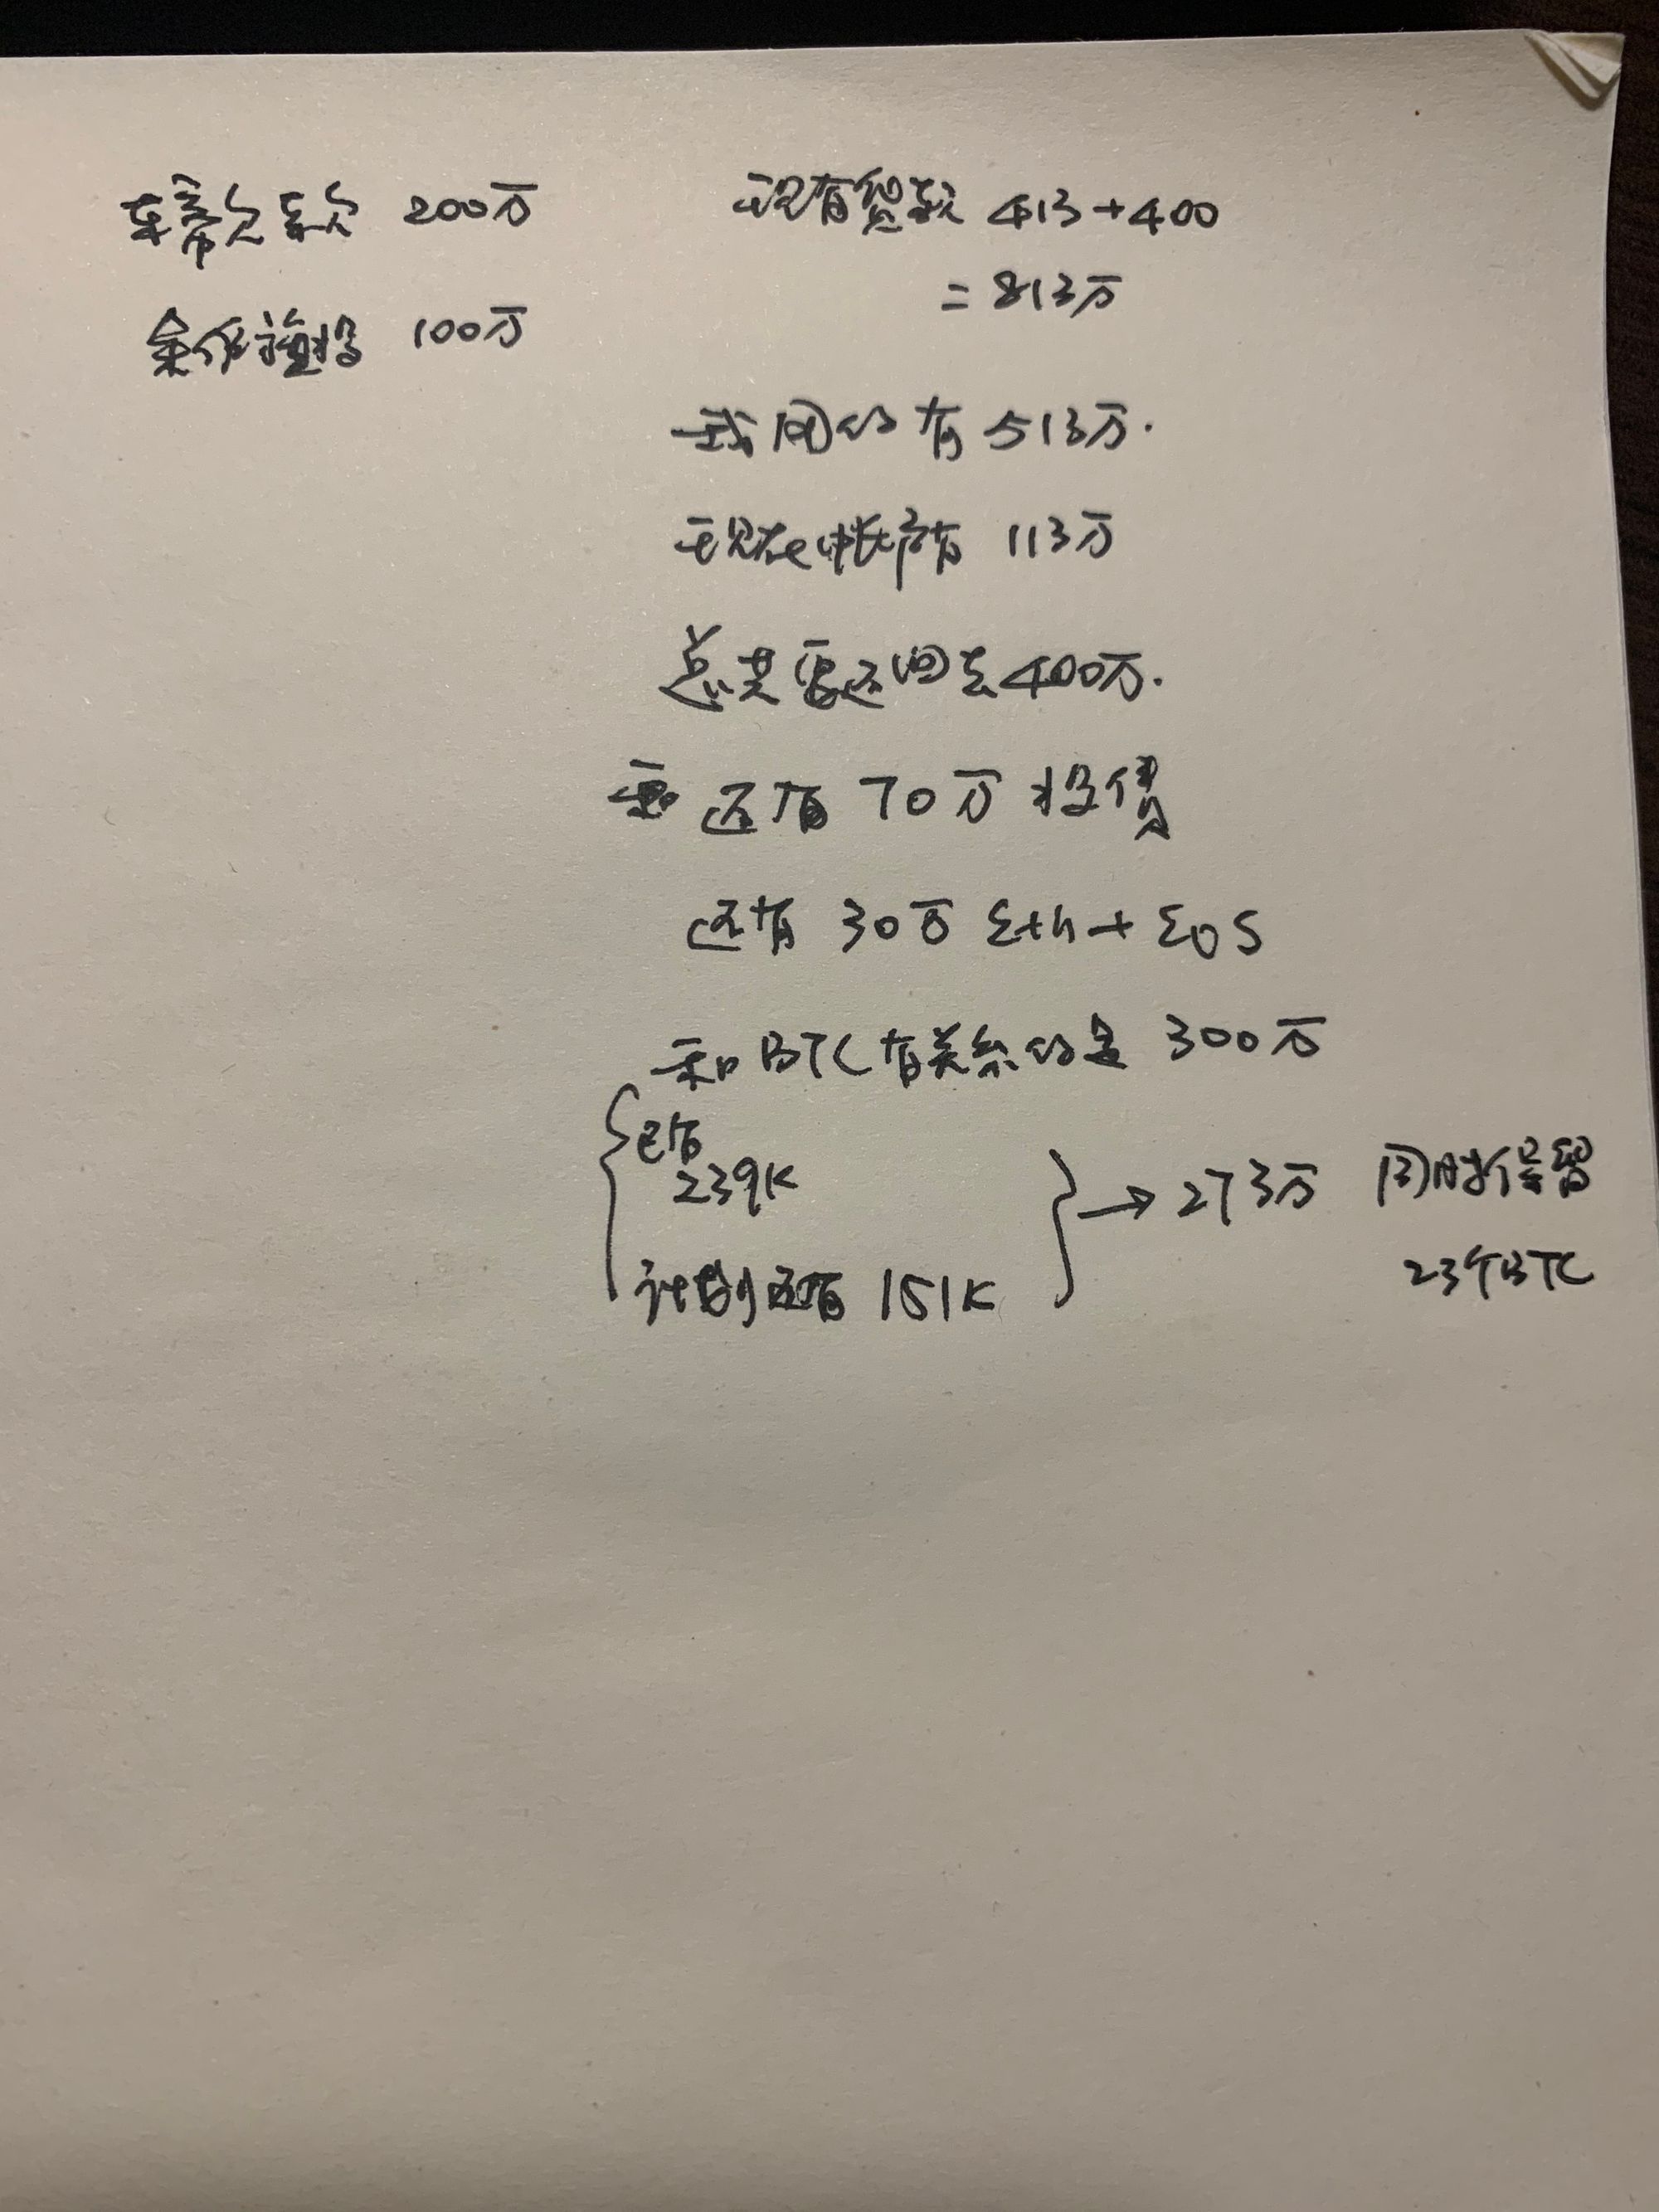 200万
100万
现有贷款 413+400
=813万
我用的有 513万.
现在帐户有 113万
总共需还回去400万.
还有 70万 投资
还有 30万 Eth+EOS
和BTC有关系的是 300万
已有
239K
计划还有 151K
→ 273万 同时保留
23个BTC